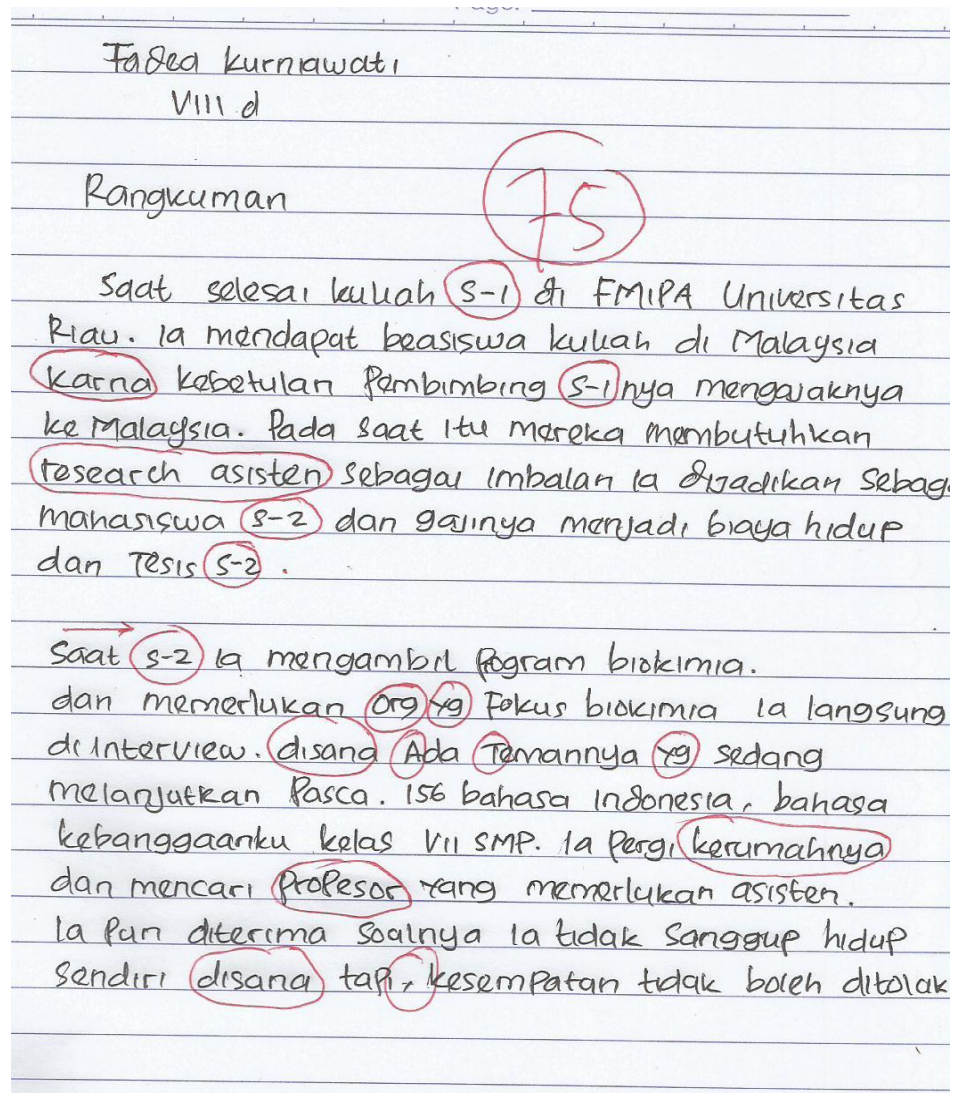 Page:
Fadea Kurniawati
VIII d
Rangkuman
75
Saat selesai kuliah S-1 di FMIPA Universitas
Riau. Ia mendapat beasiswa kuliah di Malaysia
Karna kebetulan Pembimbing S-1nya mengajaknya
ke Malaysia. Pada saat itu mereka membutuhkan
research asisten sebagai imbalan ia dijadikan Sebag
mahasiswa S-2 dan gajinya menjadi biaya hidup
dan Tesis S-2.
Saat S-2 ia mengambil Pogram biokimia.
dan memerlukan org yg Fokus biokimia ia langsung
di interview. disana Ada Temannya yg sedang
melanjutkan Pasca. 156 bahasa indonesia, bahasa
kebanggaanku kelas VII SMP. Ia Pergi kerumahnya
dan mencari Propesor yang memerlukan asisten.
Ia Pun diterima Soalnya ia tidak Sanggup hidup
Sendiri disana tapi, kesempatan tidak boleh ditolak